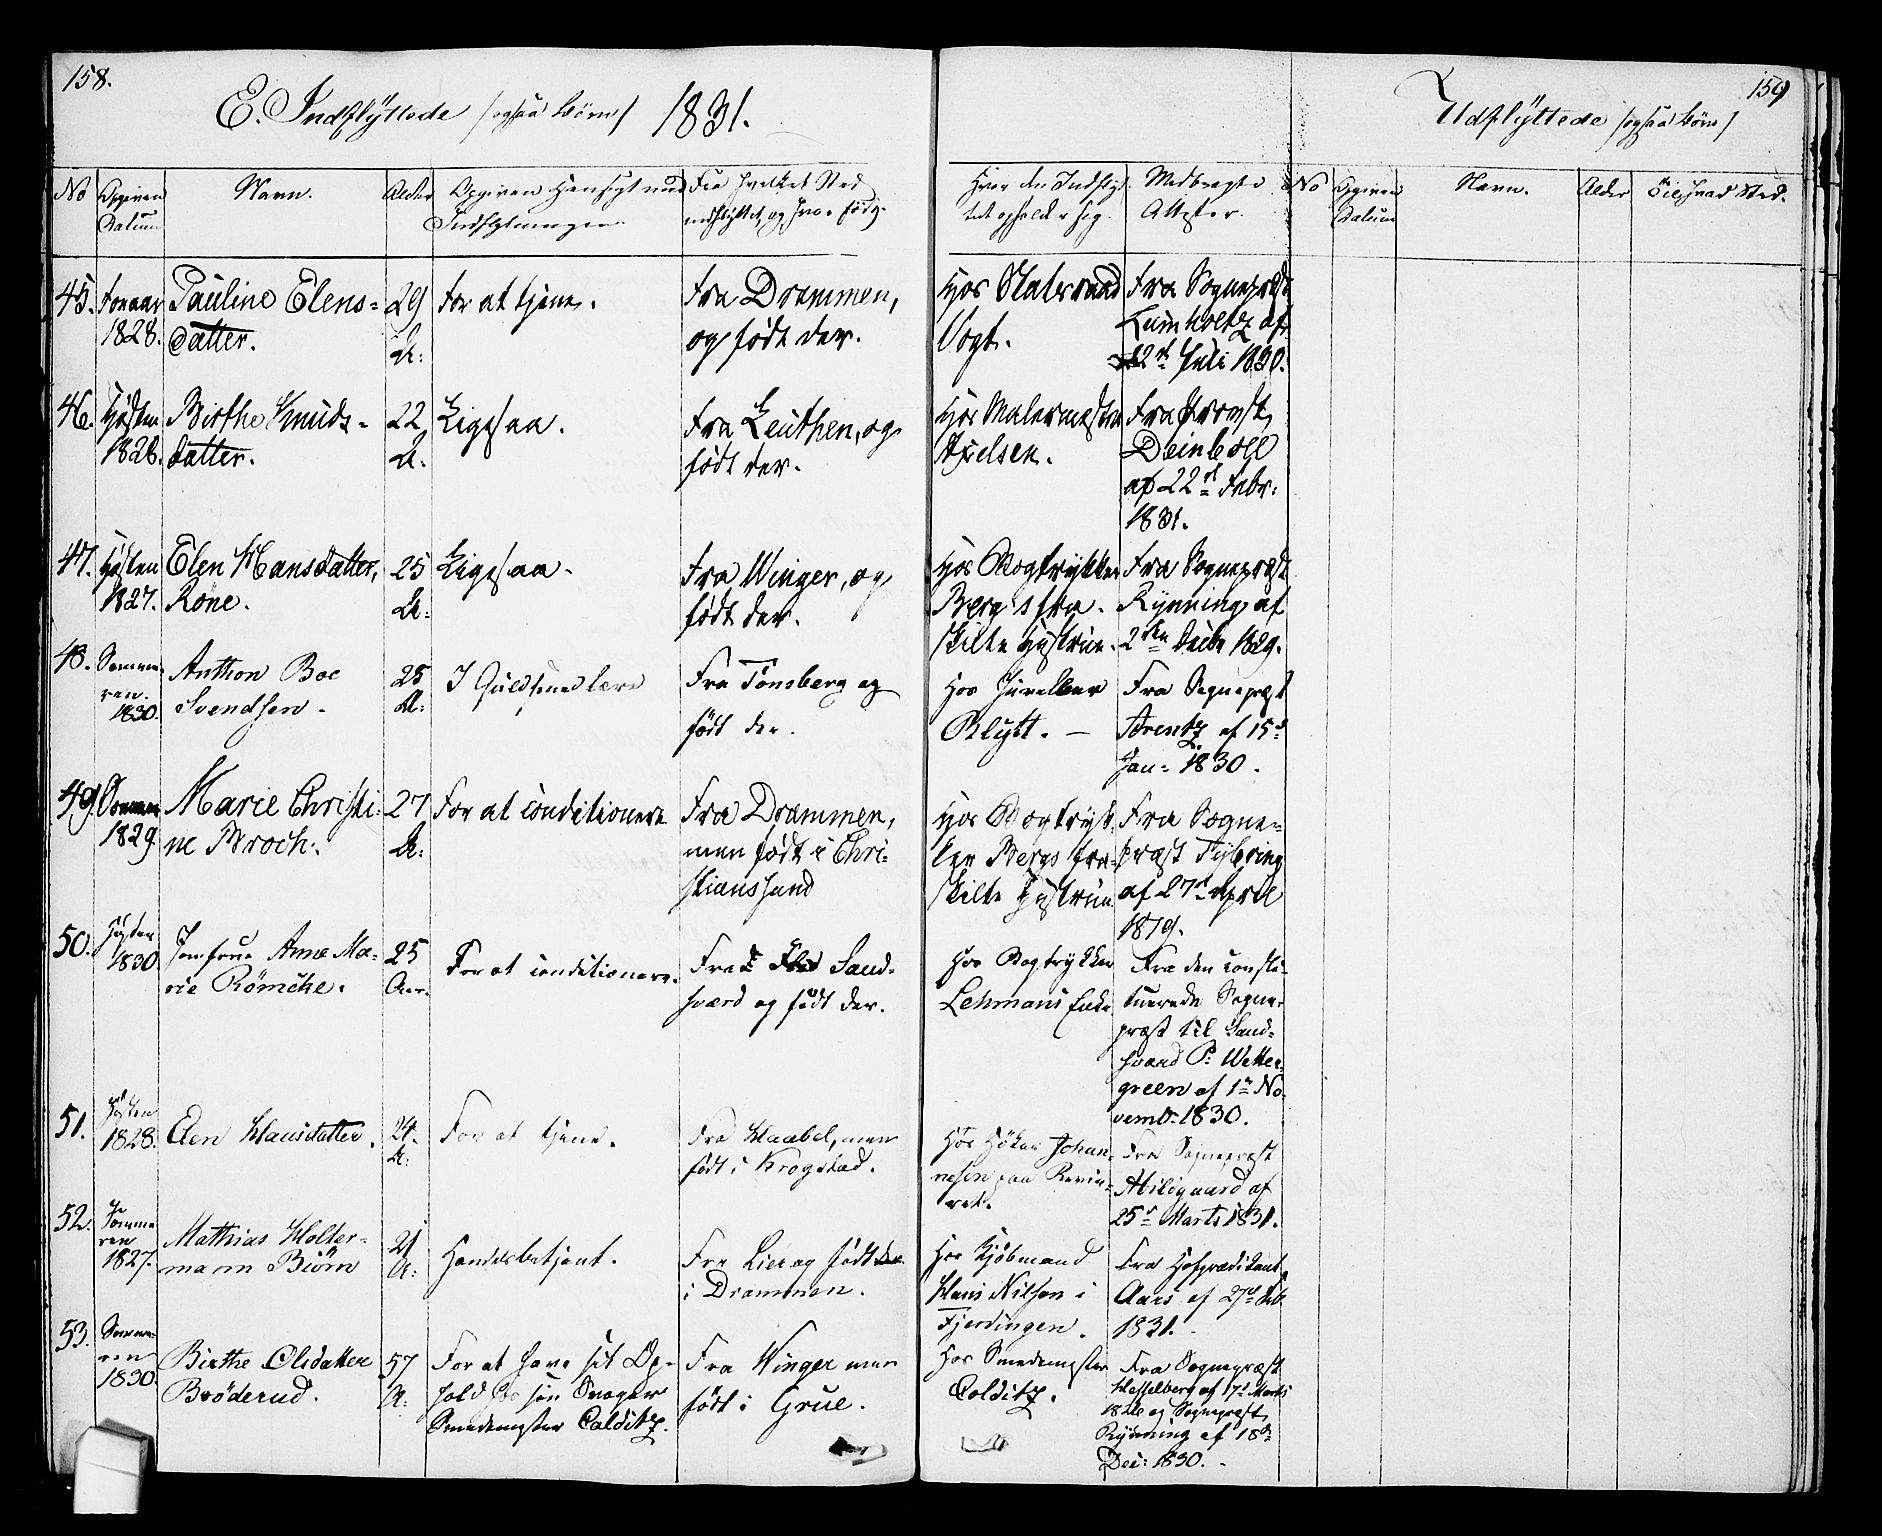 158.
E. Indflyttede /ogsaa børn/ 1831.
No
Opgiven
Datum
Navn.
Alder
Opgiven Hensigt med
Indflytningen
Fra hvilket Sted
indflyttet, og hvor født.
Hvor den Indflyt
tede opholder sig.
Medbragte
Attester.
45.
Foraar
1828.
Pauline Elens-
datter.
29
A:
For at tjene.
Fra Drammen,
og født der.
Hos Statsraad
Vogt.
Fra Sognepræst
Lumholtz af
12te Juli 1830.
46.
Høsten
1828.
Birthe Knuds-
datter.
22
A.
Ligesaa.
Fra Leuthen, og
født der.
Hos Malermester
Axelsen.
Fra Provst
Deinboll
af 22de Febr:
1831.
47.
Høsten
1827.
Elen Hansdatter,
Rone.
25
A:
Ligesaa.
Fra Winger, og
født der.
Hos Bogtrykker
Berg's fra-
skilte Hustrue.
Fra Sognepræst
Rynning af
2den Decbr 1829.
48.
Somme-
ren.
1830.
Anthon Boe
Svendsen.
25
A:
I Guldsmedlære
Fra Tønsberg og
født der.
Hos Juveleer
Blytt. –
Fra Sognepræst
Arentz af 15de
Jan: 1830.
49.
Sommeren
1829.
Marie Christi-
ne Broch.
27
A:
For at conditionere
Fra Drammen,
men født i Chri-
stianssand
Hos Bogtryk-
ker Bergs fra-
skilte Hustrue
Fra Sogne-
præst Tybring
af 27de April
1819.
50.
Høsten
1830.
Jomfrue Anne Ma-
rie Römcke.
25
Aar.
For at conditionere.
Fra Sand-
sværd og født der.
Hos Bogtrykker
Lehmans Enke
Fra den consti-
tuerede Sogne-
præst til Sand-
sværd P: Wetter-
green af 1ste No-
vembr 1830.
51.
Høsten
1828.
Elen Hansdatter.
24.
A:
For at tjene.
Fra Haabel, men
født i Krogstad.
Hos Høker Johan-
nesen paa Revie-
ret.
Fra Sognepræst
Abildgaard af
25de Marts 1831.
52.
Somme
ren
1827.
Mathias Holter-
mann Biörn
21
A:
Handelsbetjent.
Fra Lier og født
i Drammen.
Hos Kjøbmand
Hans Nilsen i
Fjerdingen.
Fra Hofprædikant
Aars af 27de Feb.
1831.
53.
Somme-
ren
1830.
Birthe Olsdatter
Bröderud.
57
A:
For at have sit Op-
hold hos sin Svoger
Smedemester Colditz.
Fra Winger men
født i Grue.
Hos Smedemester
Colditz.
Fra Sognepræst
Hesselberg af 17de Marts
og Sognepræst
Rynning af 18de
Dec: 1830.
159
Udflyttede /ogsaa børn/
No
Opgiven
Datum
Navn.
Alder
Til hvad Sted.